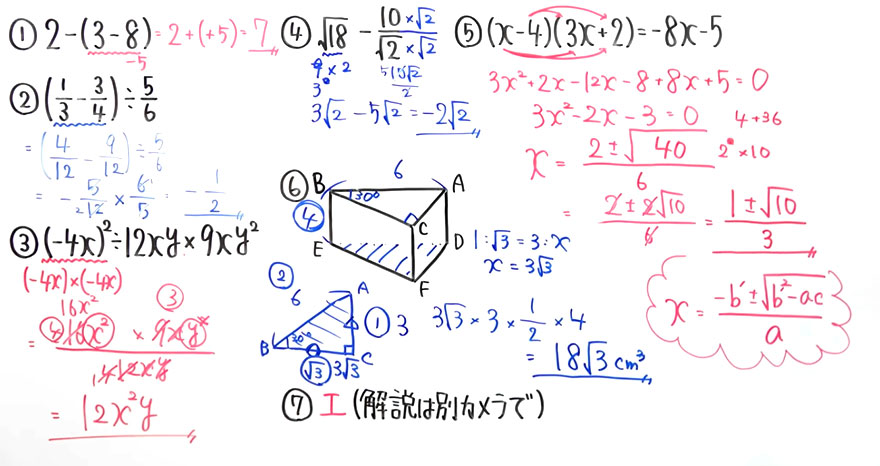 ① 2-(3-8)=2+(+5)=7
-5
② (1/3-3/4)÷5/6
=(4/12-9/12)÷5/6
=-5/12×6/5=-1/2
③ (-4x)²÷12xy×9xy²
(-4x)×(-4x)
16x²
③
=④16x²×9xy²/12xy
=12x²y
④ √18-10×√2/√2×√2
9×2
3²
510√2/2
3√2-5√2=-2√2
⑤ (x-4)(3x+2)=-8x-5
3x²+2x-12x-8+8x+5=0
3x²-2x-3=0
4+36
x=2±√40/6
2²×10
=2±2√10/6=1±√10/3
x=-b'±√b'²-ac/a
⑥ B 6 A
30°
④
C
E D
F
1:√3=3:x
x=3√3
②
6 A
① 3
B 30° C
√3 3√3
3√3×3×1/2×4
=18√3cm³
⑦ エ(解説は別カメラで)